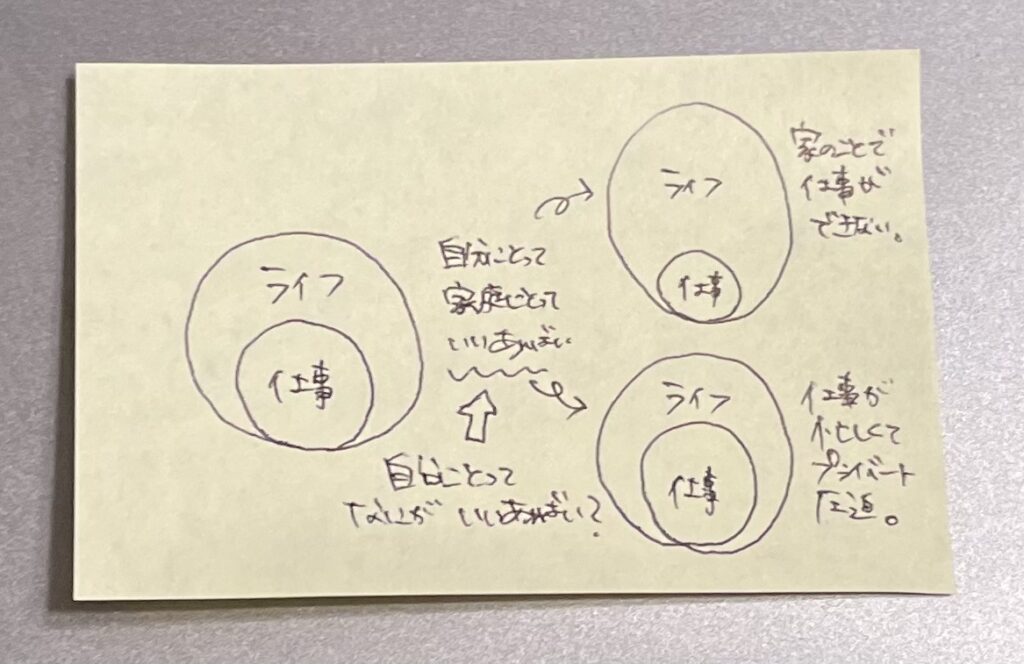 ライフ
仕事
自分にとって
家庭にとって
いいあんばい
自分にとって
なにが いいあんばい?
ライフ
仕事
家のことで
仕事が
できない。
ライフ
仕事
仕事が
忙しくて
プライベート
圧迫。